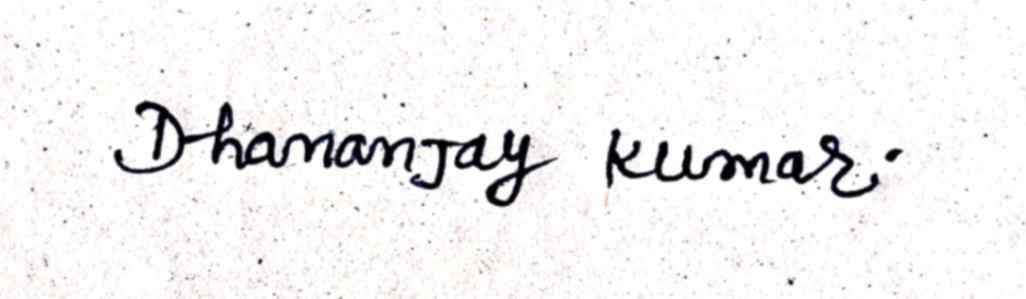 Dhananjay Kumar.